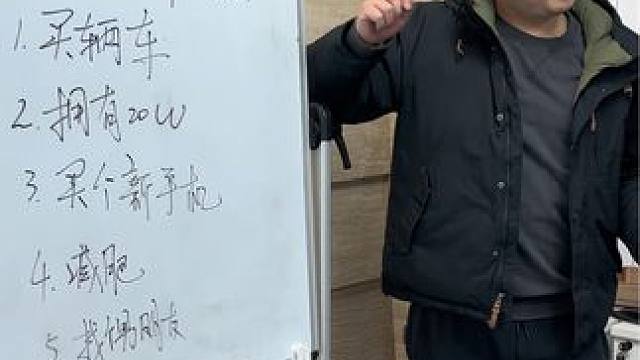 1. 买辆车
2. 拥有20W
3. 买个新手机
4. 减肥
5. 找女朋友